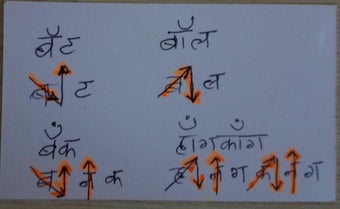 बॅट
ब ट
बॉल
ब ल
बँक
ब न क
हाँगकाँग
ह न ग क न ग